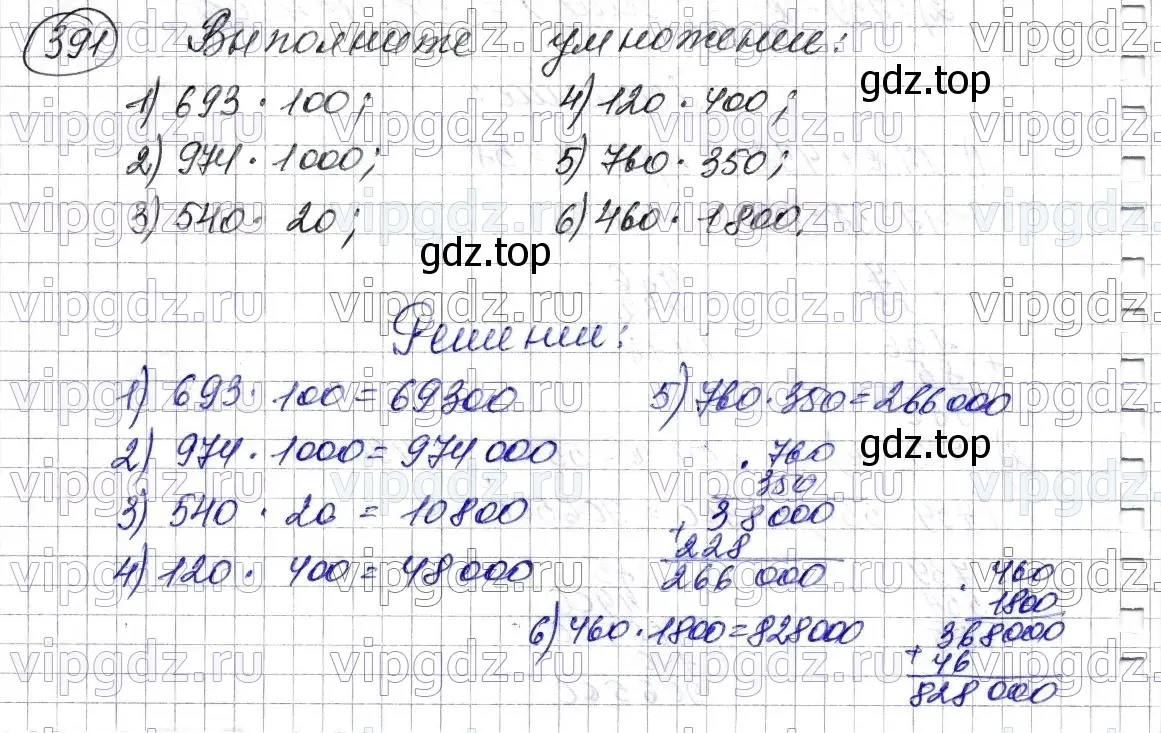 391 Выполните умножение:
1) 693 · 100; 4) 120 · 400;
2) 974 · 1000; 5) 760 · 350;
3) 540 · 20; 6) 460 · 1800.
Решение:
1) 693 · 100 = 69300
2) 974 · 1000 = 974 000
3) 540 · 20 = 10800
4) 120 · 400 = 48000
5) 760 · 350 = 266 000
· 760
350
+ 38000
228
266 000
6) 460 · 1800 = 828000
· 460
1800
+ 368000
46
828 000
gdz.top
gdz.top
gdz.top
vipgdz.ru